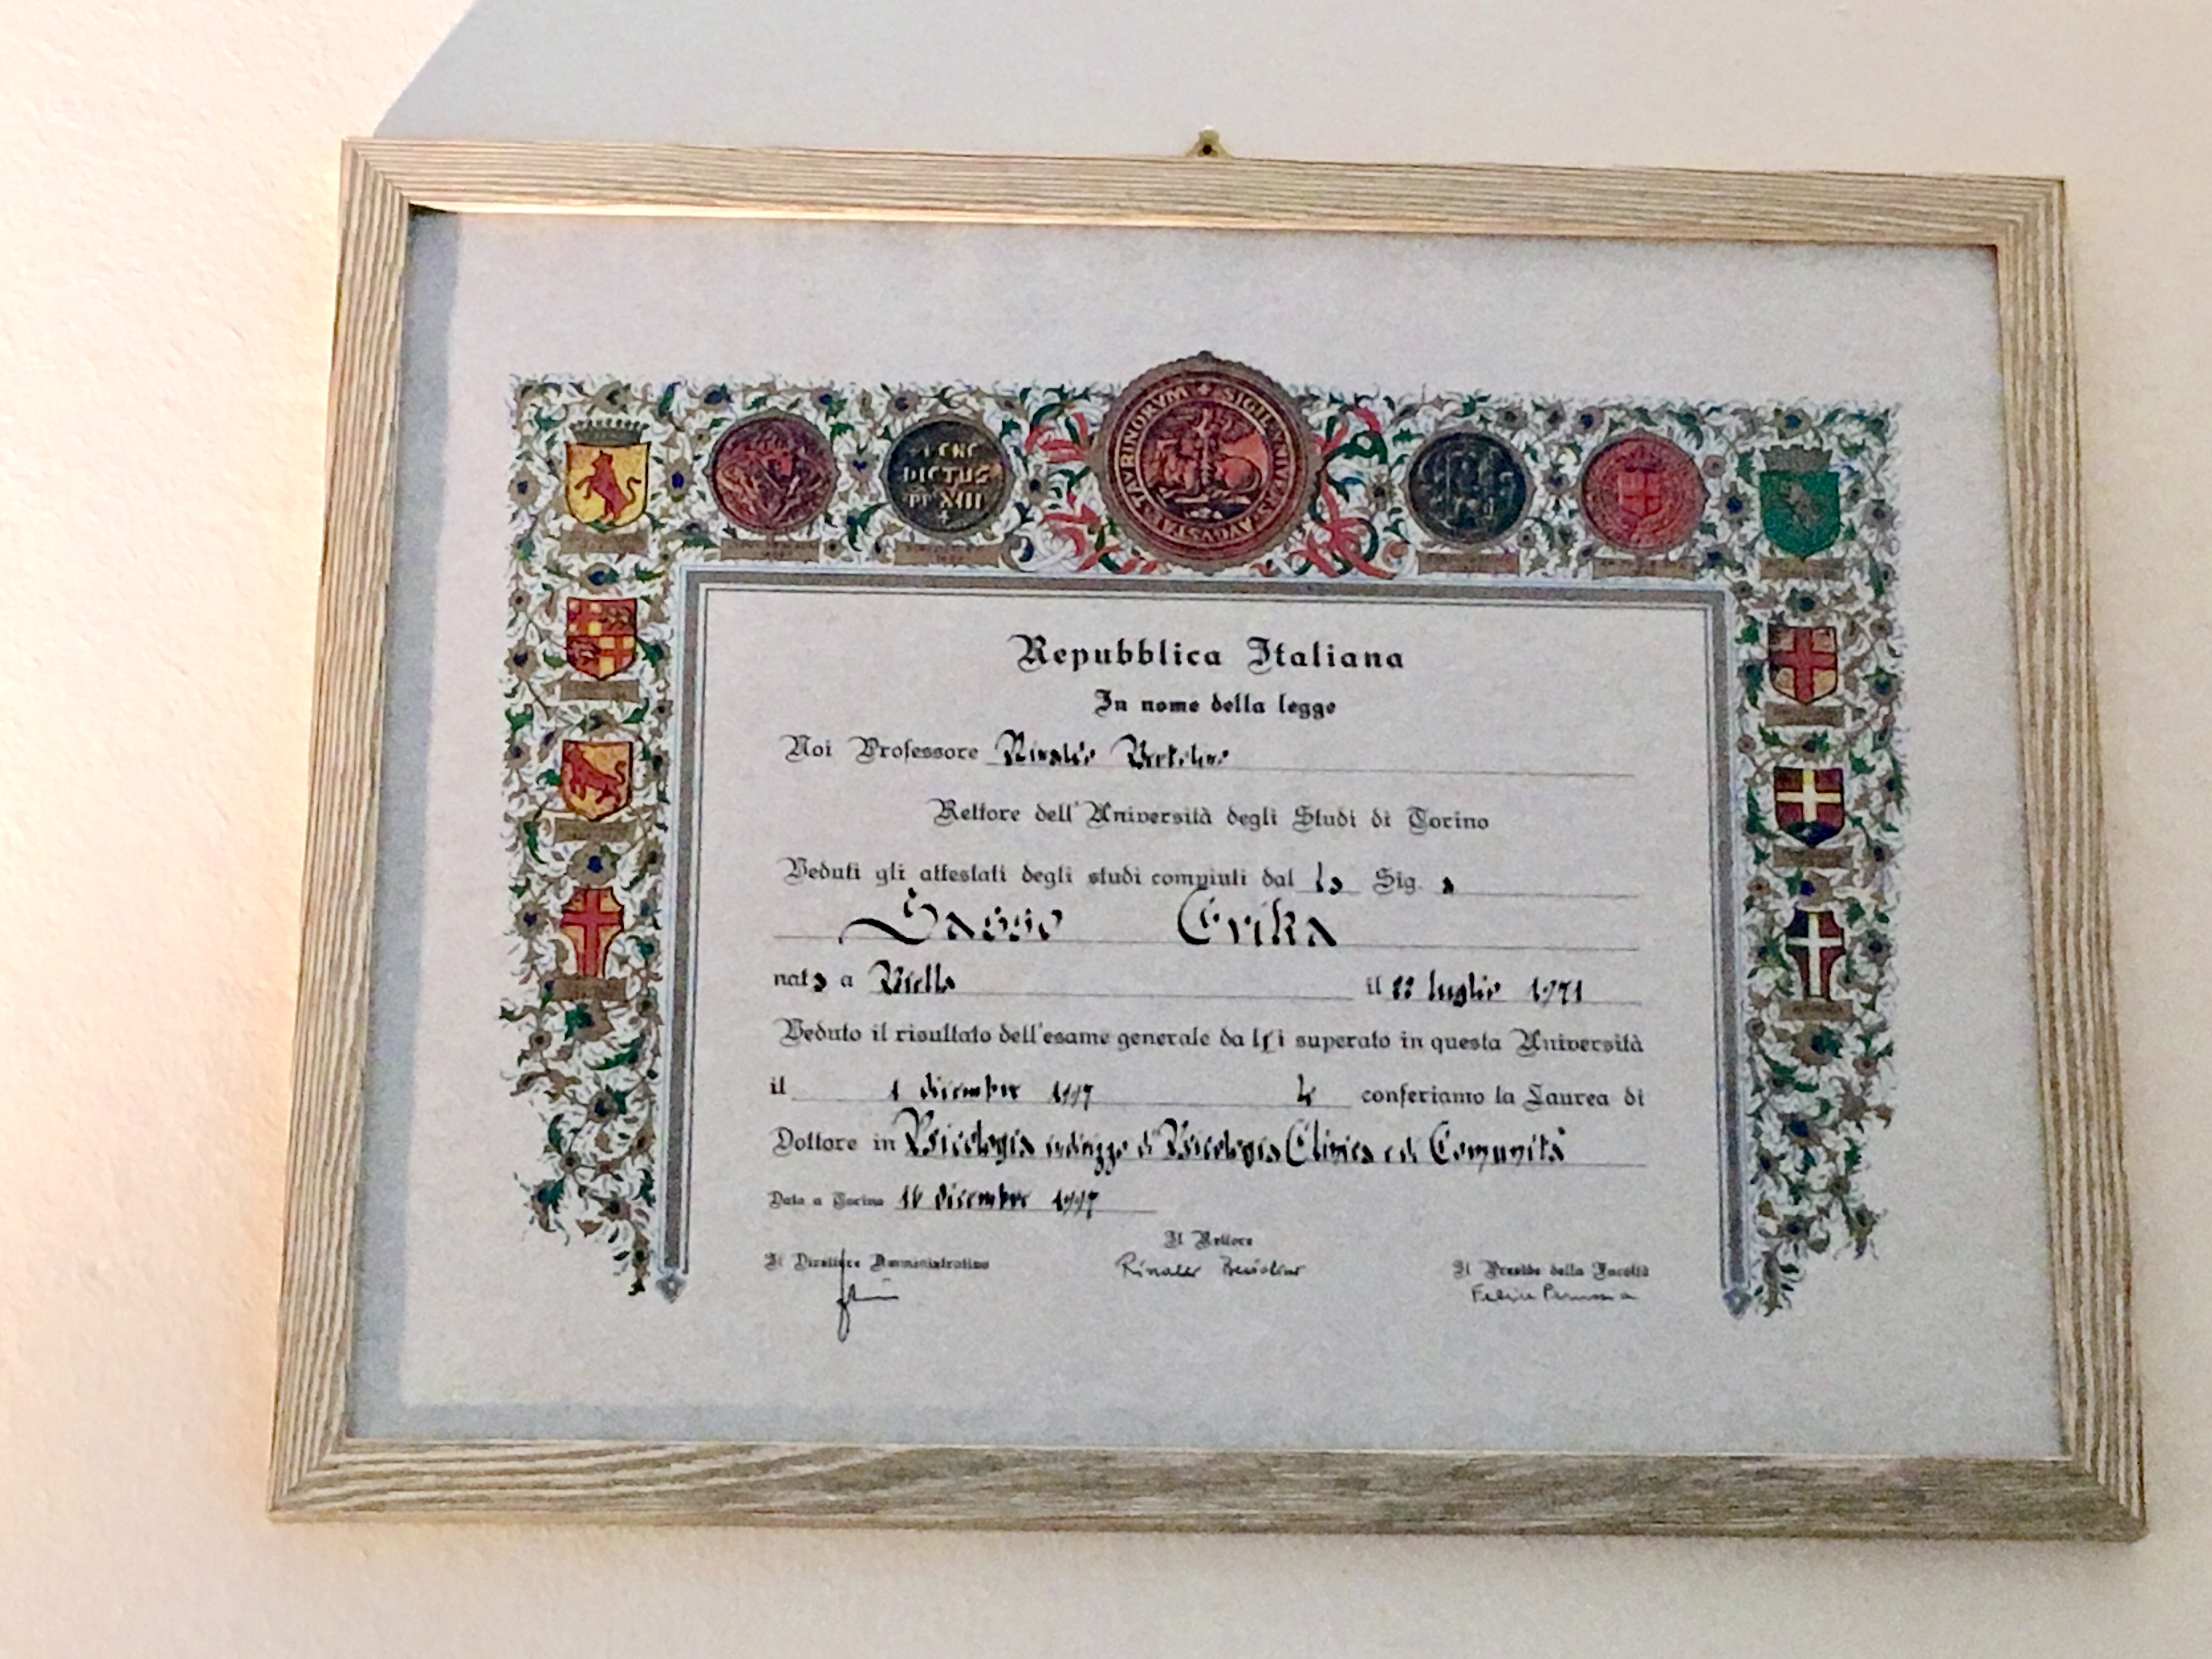 SIGILL VNIVERS AVGVSTAE TAVRINORVM
BENE
DICTUS
PP XIII
Repubblica Italiana
In nome della legge
Noi Professore Rinaldo Bertolino
Rettore dell'Università degli Studi di Torino
Veduti gli attestati degli studi compiuti dal la Sig. a
Sasso Erika
nata a Biella il luglio 1971
Veduto il risultato dell'esame generale da lei superato in questa Università
il 1 dicembre 1997 Le conferiamo la Laurea di
Dottore in Psicologia indirizzo di Psicologia Clinica e di Comunità
Data a Torino 16 dicembre 1997
Il Direttore Amministrativo Il Rettore Il Preside della Facoltà
Rinaldo Bertolino